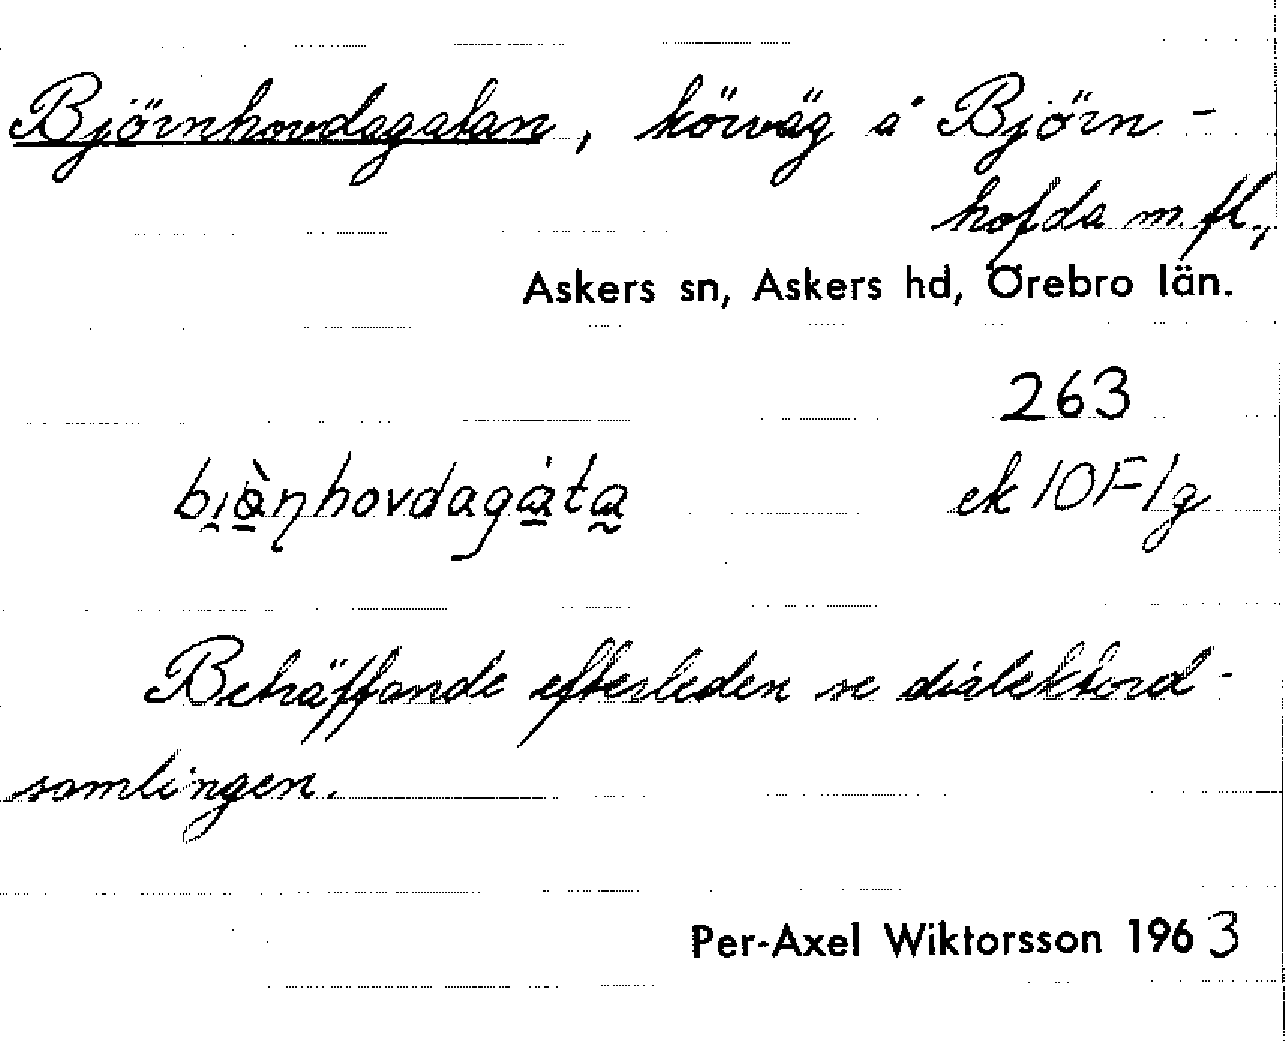 Björnhovdagatan, körväg å Björn-
hofda m.fl.,
Askers sn, Askers hd, Örebro län.
263
ek 10F1g
Beträffande efterleden se dialektord-
samlingen.
Per-Axel Wiktorsson 1963